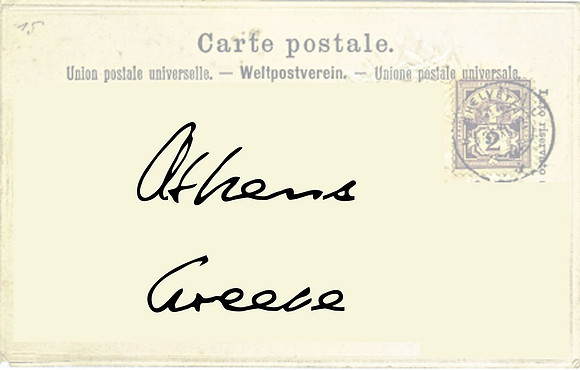 15
Carte postale.
Union postale universelle. — Weltpostverein. — Unione postale universale.
HELVETIA
2
Lato riservato
Athens
Greece